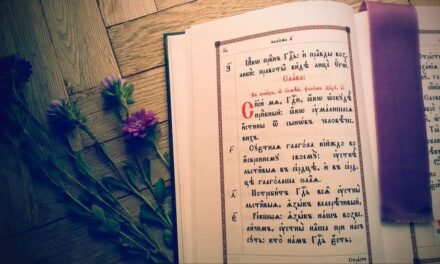 з҃ Ꙗ҆́кѡ првⷣнъ гдⷭ҇ь, и҆ пра̑вды воз-
любѝ: правѡты̀ ви́дѣ лицѐ є҆гѡ̀.
Сла́ва:
Въ коне́цъ, ѡ҆ ѻ҆смѣ́й, ѱало́мъ дв҃дꙋ, а҃і.
Сп҃сѝ мѧ̀, гдⷭ҇и, ꙗ҆́кѡ ѡ҆скꙋдѣ̀
прпⷣбный: ꙗ҆́кѡ ᲂу҆ма́лишасѧ
и҆́стины ѿ сынѡ́въ человѣ́че-
скихъ.
Сꙋ́єтнаѧ глаго́ла кі́йждо ко
и҆́скреннемꙋ своемꙋ̀: ᲂу҆стнѣ̀
льсти̑выѧ въ се́рдцѣ, и҆ въ се́рд-
цѣ глаго́лаша ѕла̑ѧ.
Потреби́тъ гдⷭ҇ь всѧ̑ ᲂу҆стны̀
льсти̑выѧ, ѧ҆зы́къ велерѣ́чивый,
Ре́кшыѧ: ѧ҆зы́къ на́шъ возве-
ли́чимъ, ᲂу҆стны̀ на́шѧ при на́съ
сꙋ́ть: кто̀ на́мъ гдⷭ҇ь є҆́сть;
Стра́сти